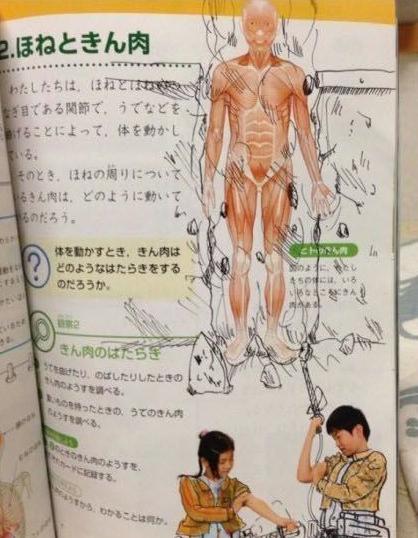 2.ほねときん肉
わたしたちは，ほねとほねの
なぎ目である関節で，うでなどを
げることによって，体を動かし
ている。
そのとき，ほねの周りについて
いるきん肉は，どのように動いて
るのだろう。
?
体を動かすとき，きん肉は
どのようなはたらきをする
のだろうか。
観察2
きん肉のはたらき
うでを曲げたり，のばしたりしたときの
きん肉のようすを調べる。
重いものを持ったときの，うでのきん肉
のようすを調べる。
のときのきん肉のようすを，
カードに記録する。
のようすから，わかることは何か。
ヒトのきん肉
図のように，わたし
たちの体には，いろ
いろなところにきん
肉がある。